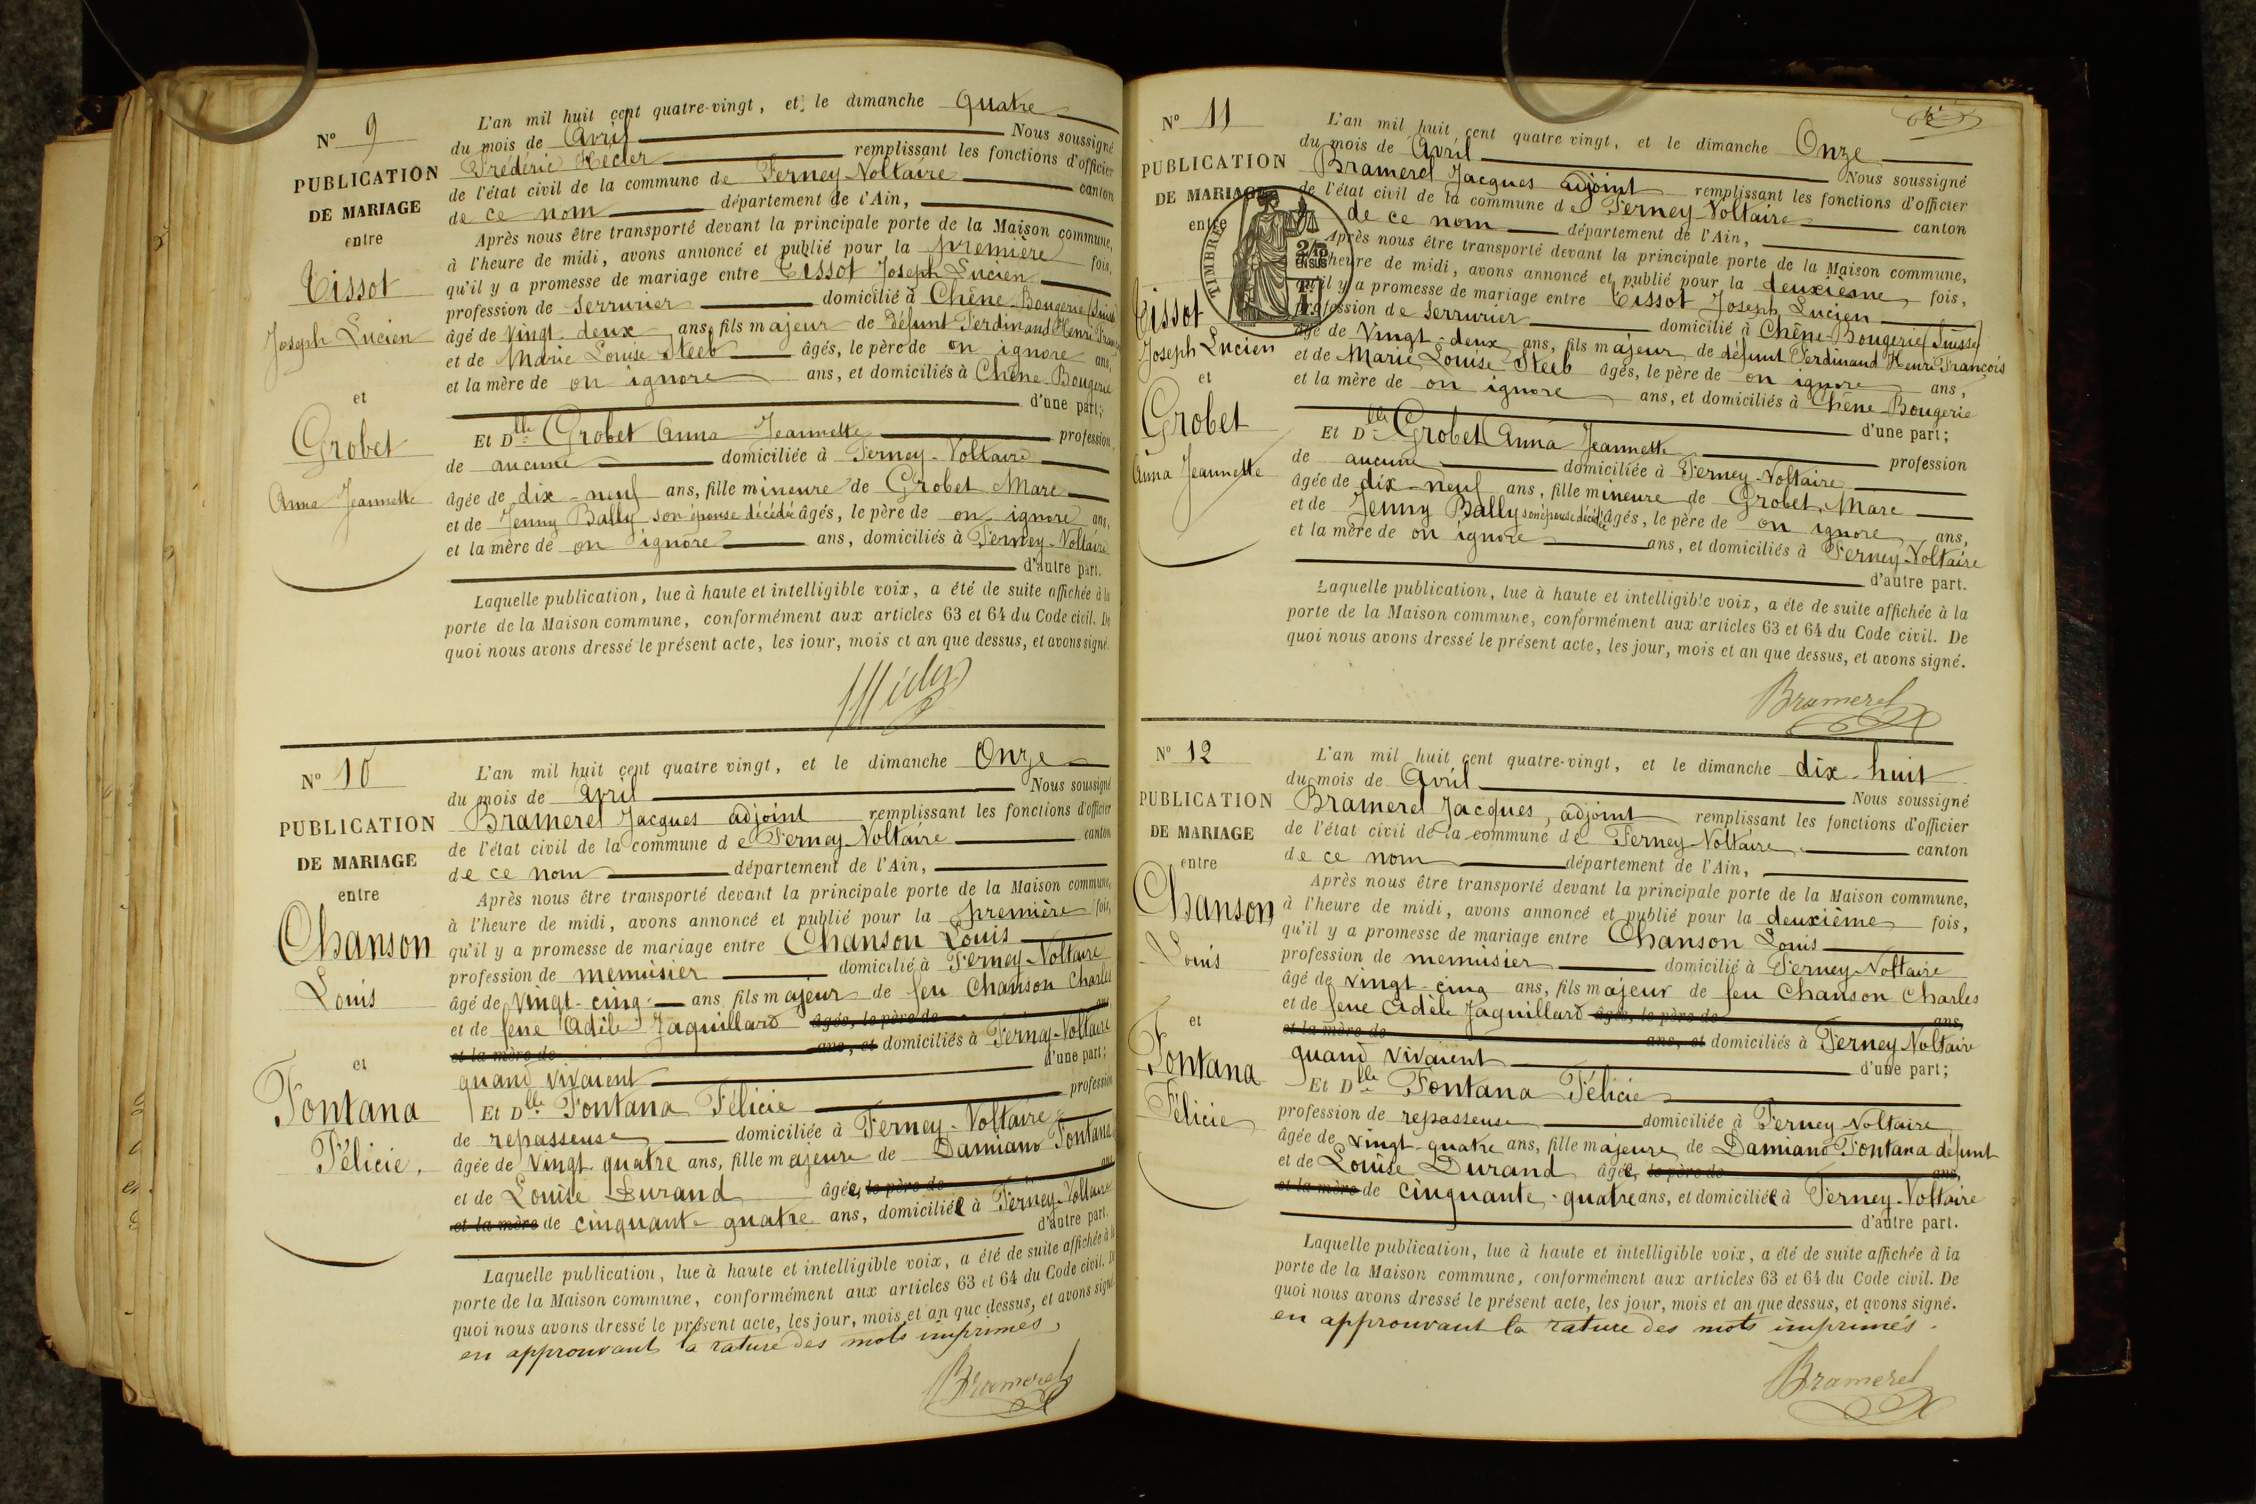 N° 9
PUBLICATION
DE MARIAGE
entre
Tissot
Joseph Lucien
et
Grobet
Anna Jeannette
L'an mil huit cent quatre-vingt, et le dimanche quatre
du mois de Avril Nous soussigné
Frédéric remplissant les fonctions d'officier
de l'état civil de la commune de Ferney-Voltaire canton
de ce nom département de l'Ain,
Après nous être transporté devant la principale porte de la Maison commune,
à l'heure de midi, avons annoncé et publié pour la première fois,
qu'il y a promesse de mariage entre Tissot Joseph Lucien
profession de serrurier domicilié à Chêne-Bougerie (Suisse
âgé de vingt-deux ans, fils majeur de défunt Ferdinand Henri
et de Marie Louise Steeb âgés, le père de on ignore ans,
et la mère de on ignore ans, et domiciliés à Chêne-Bougerie
d'une part;
Et Dlle Grobet Anna Jeannette profession
de aucune domiciliée à Ferney-Voltaire
âgée de dix-neuf ans, fille mineure de Grobet Marc
et de Jenny Bally son épouse décédée âgés, le père de on ignore ans,
et la mère de on ignore ans, domiciliés à Ferney-Voltaire
d'autre part.
Laquelle publication, lue à haute et intelligible voix, a été de suite affichée à la
porte de la Maison commune, conformément aux articles 63 et 64 du Code civil. De
quoi nous avons dressé le présent acte, les jour, mois et an que dessus, et avons signé.
N° 10
PUBLICATION
DE MARIAGE
entre
Chanson
Louis
et
Fontana
Félicie.
L'an mil huit cent quatre vingt, et le dimanche Onze
du mois de Avril Nous soussigné
Bramerel Jacques adjoint remplissant les fonctions d'officier
de l'état civil de la commune de Ferney-Voltaire canton
de ce nom département de l'Ain,
Après nous être transporté devant la principale porte de la Maison commune,
à l'heure de midi, avons annoncé et publié pour la première fois,
qu'il y a promesse de mariage entre Chanson Louis
profession de menuisier domicilié à Ferney-Voltaire
âgé de vingt-cinq ans, fils majeur de feu Chanson Charles
et de feue Adèle Jaquillard âgés, le père de ans,
et la mère de ans, et domiciliés à Ferney-Voltaire
quand vivaient d'une part;
Et Dlle Fontana Félicie profession
de repasseuse domiciliée à Ferney-Voltaire
âgée de vingt-quatre ans, fille majeure de Damiano Fontana
et de Louise Durand âgée, le père de ans
et la mère de cinquante-quatre ans, domiciliée à Ferney-Voltaire
d'autre part.
Laquelle publication, lue à haute et intelligible voix, a été de suite affichée à la
porte de la Maison commune, conformément aux articles 63 et 64 du Code civil. De
quoi nous avons dressé le présent acte, les jour, mois et an que dessus, et avons signé
en approuvant la rature des mots imprimés,
Bramerel
N° 11
PUBLICATION
DE MARIAGE
entre
TIMBRE
2/10
EN SUS
Tissot
Joseph Lucien
et
Grobet
Anna Jeannette
L'an mil huit cent quatre vingt, et le dimanche Onze
du mois de Avril Nous soussigné
Bramerel Jacques adjoint remplissant les fonctions d'officier
de l'état civil de la commune de Ferney-Voltaire canton
de ce nom département de l'Ain,
Après nous être transporté devant la principale porte de la Maison commune,
heure de midi, avons annoncé et publié pour la deuxième fois,
qu'il y a promesse de mariage entre Tissot Joseph Lucien
profession de serrurier domicilié à Chêne-Bougerie (Suisse)
âgé de vingt-deux ans, fils majeur de défunt Ferdinand Henri François
et de Marie Louise Steeb âgés, le père de on ignore ans,
et la mère de on ignore ans, et domiciliés à Chêne-Bougerie
d'une part;
Et Dlle Grobet Anna Jeannette profession
de aucune domiciliée à Ferney-Voltaire
âgée de dix-neuf ans, fille mineure de Grobet, Marc
et de Jenny Bally son épouse décédée âgés, le père de on ignore ans,
et la mère de on ignore ans, et domiciliés à Ferney-Voltaire
d'autre part.
Laquelle publication, lue à haute et intelligible voix, a été de suite affichée à la
porte de la Maison commune, conformément aux articles 63 et 64 du Code civil. De
quoi nous avons dressé le présent acte, les jour, mois et an que dessus, et avons signé.
Bramerel
N° 12
PUBLICATION
DE MARIAGE
entre
Chanson
Louis
et
Fontana
Félicie
L'an mil huit cent quatre-vingt, et le dimanche dix-huit
du mois de Avril Nous soussigné
Bramerel Jacques, adjoint remplissant les fonctions d'officier
de l'état civil de la commune de Ferney-Voltaire canton
de ce nom département de l'Ain,
Après nous être transporté devant la principale porte de la Maison commune,
à l'heure de midi, avons annoncé et publié pour la deuxième fois,
qu'il y a promesse de mariage entre Chanson Louis
profession de menuisier domicilié à Ferney-Voltaire
âgé de vingt-cinq ans, fils majeur de feu Chanson Charles
et de feue Adèle Jaquillard âgés, le père de ans,
et la mère de ans, et domiciliés à Ferney-Voltaire
quand vivaient d'une part;
Et Dlle Fontana Félicie
profession de repasseuse domiciliée à Ferney-Voltaire
âgée de vingt-quatre ans, fille majeure de Damiano Fontana défunt
et de Louise Durand âgée, le père de ans,
et la mère de cinquante-quatre ans, et domiciliée à Ferney-Voltaire
d'autre part.
Laquelle publication, lue à haute et intelligible voix, a été de suite affichée à la
porte de la Maison commune, conformément aux articles 63 et 64 du Code civil. De
quoi nous avons dressé le présent acte, les jour, mois et an que dessus, et avons signé.
en approuvant la rature des mots imprimés.
Bramerel